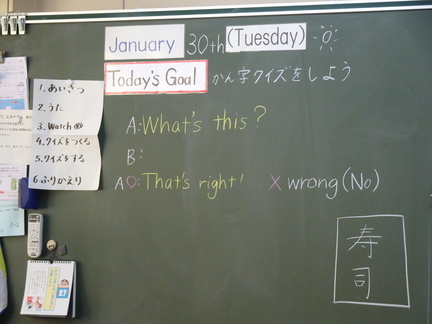 January 30th (Tuesday)
Today's Goal かん字クイズをしよう
1. あいさつ
2. うた
3. Watch
4. クイズをつくる
5. クイズをする
6. ふりかえり
A: What's this?
B:
A ○: That's right! × wrong (No)
寿
司